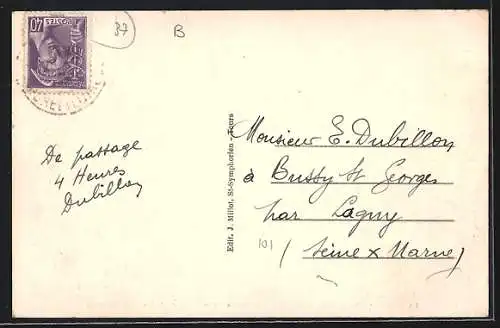 40
POSTES
37
B
De passage
4 Heures
Dubillon
Edit. J. Millot, St-Symphorien - Tours
Monsieur E. Dubillon
à Bussy St Georges
par Lagny
(Seine x Marne)
101